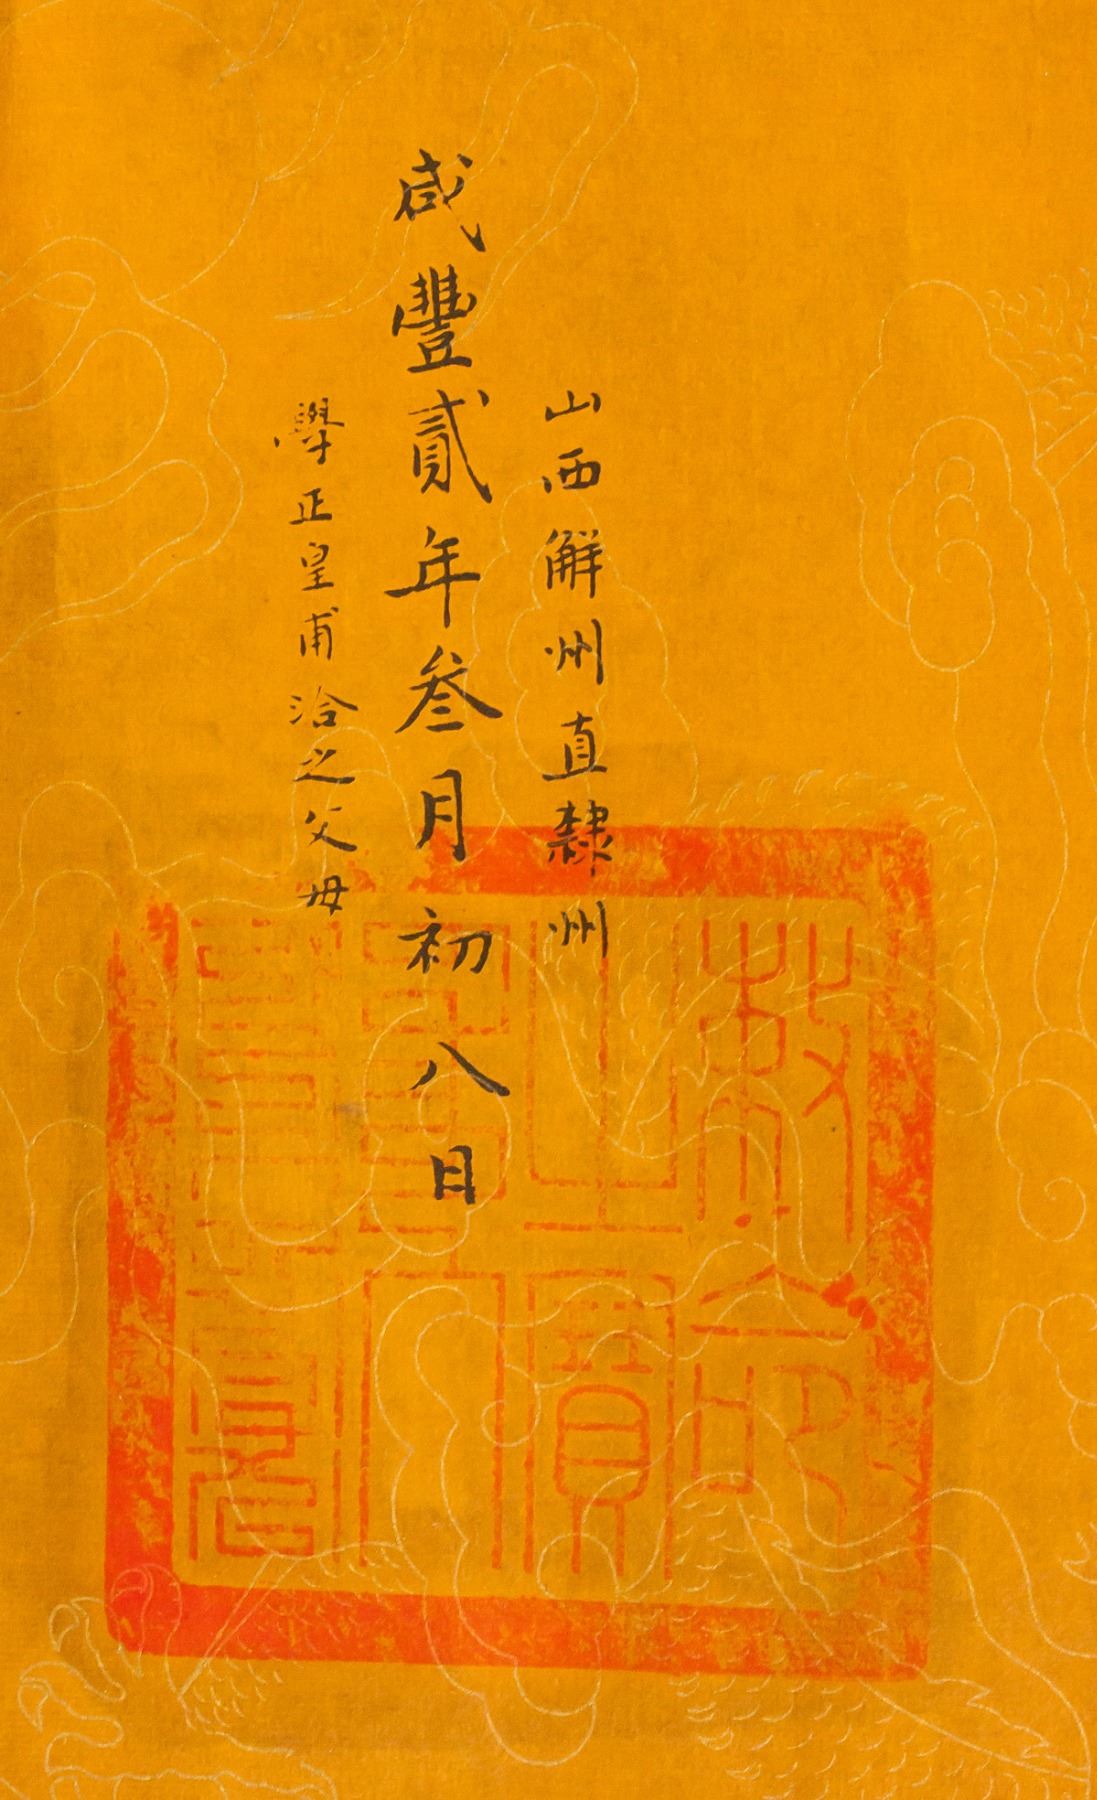 山西觧州直隸州
咸豐貳年叁月初八日
學正皇甫洽之父母
敕命
之寶